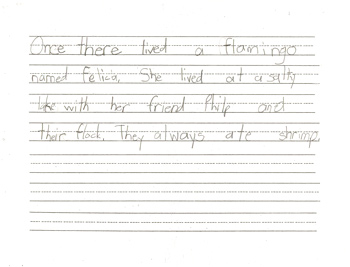 Once there lived a flamingo
named Felicia. She lived at a salty
lake with her friend Philip and
their flock. They always ate shrimp.